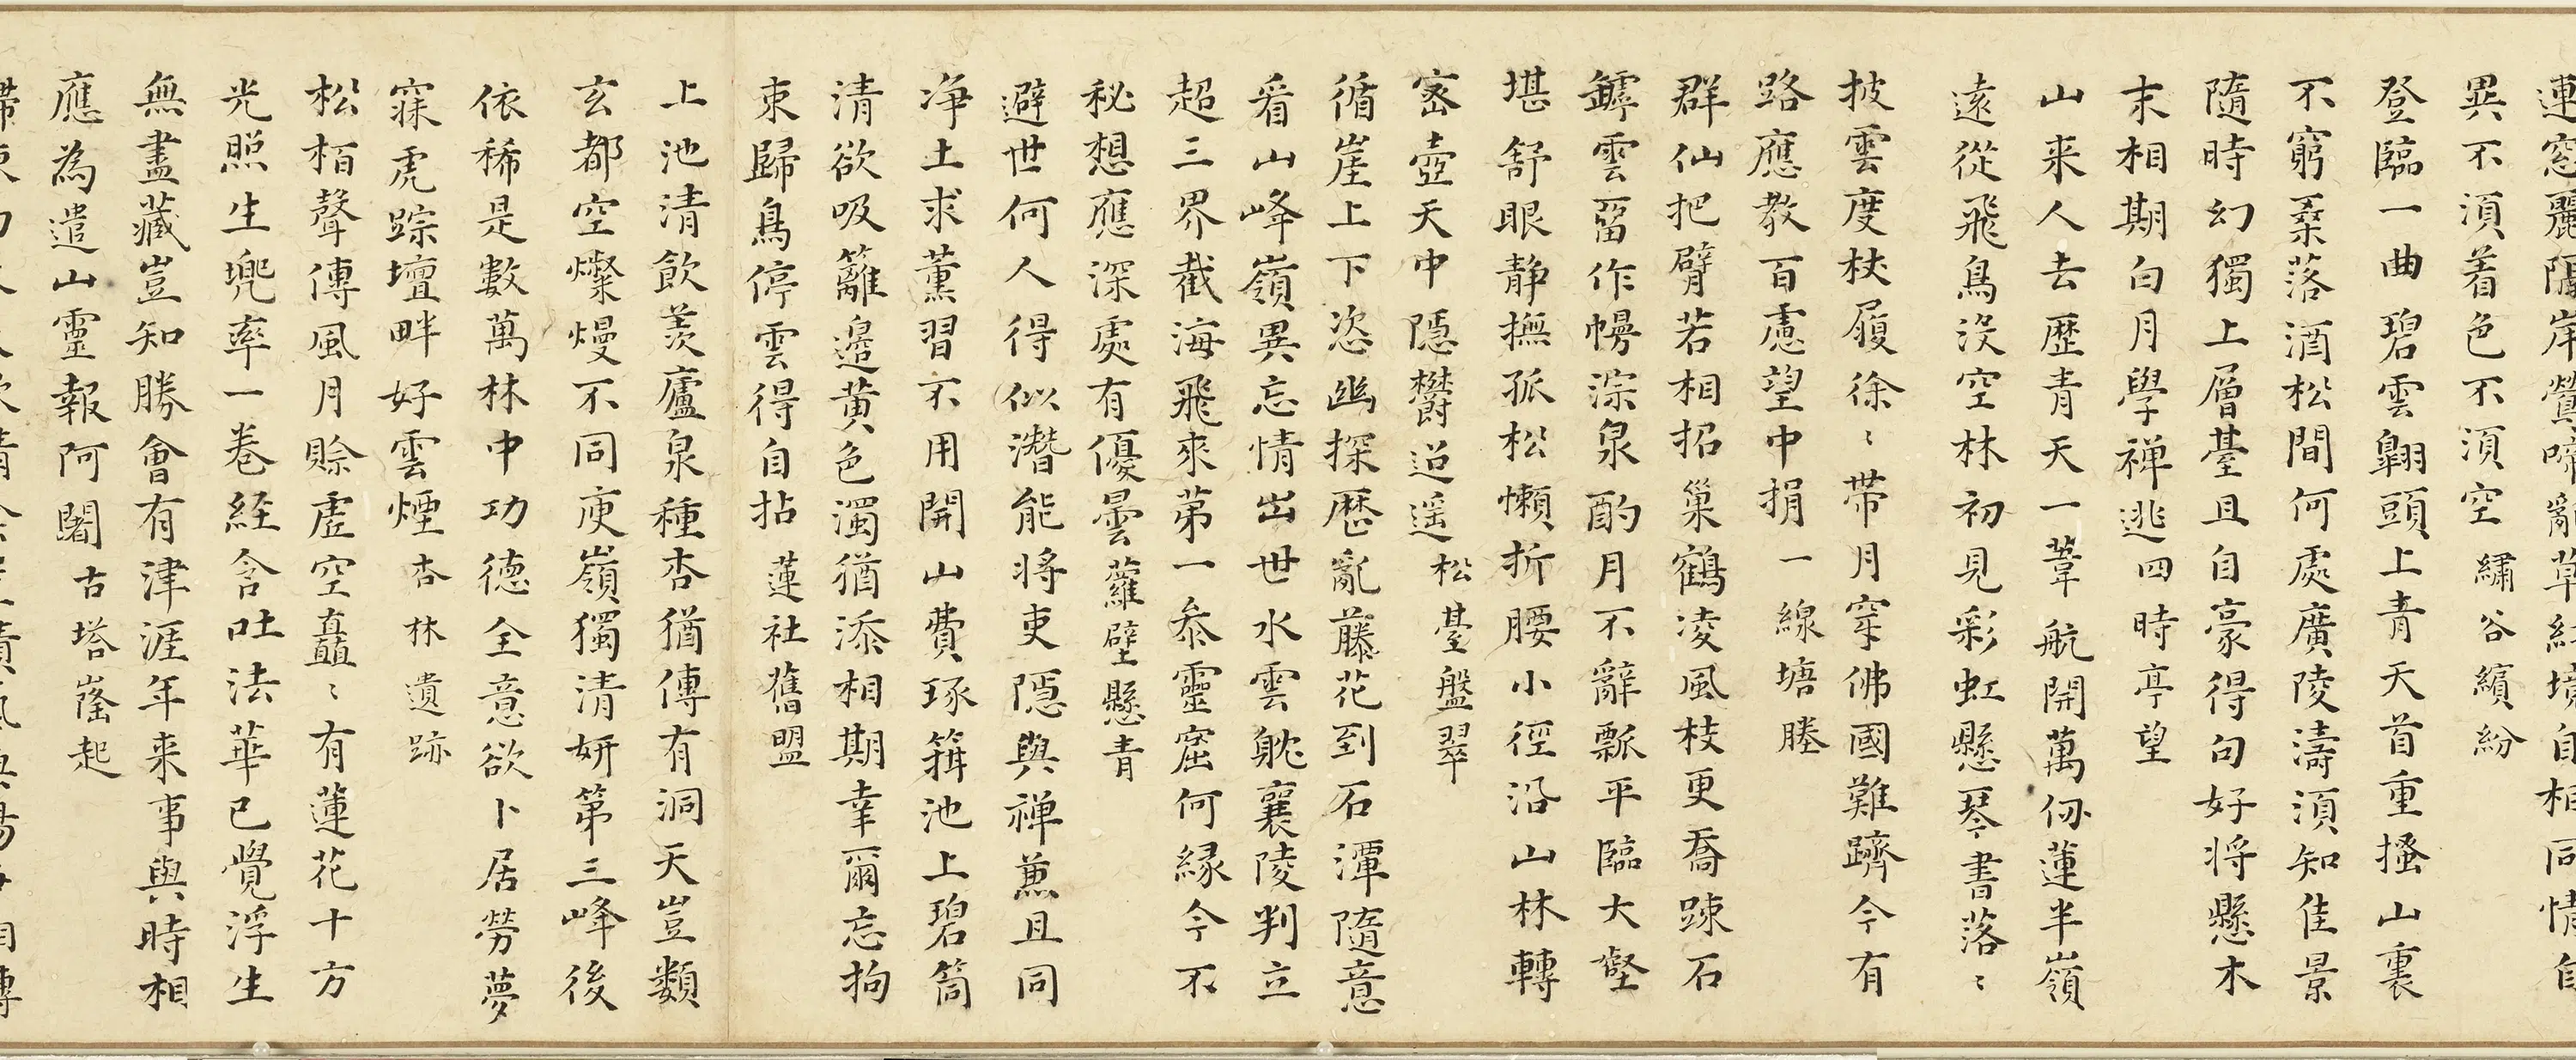 連窓麗隔岸鶯啼亂草紅墳自相同情自
異不須着色不須空 繡谷繽紛
登臨一曲碧雲翺頭上青天首重搔山裏
不窮桑落酒松間何處廣陵濤須知佳景
隨時幻獨上層臺且自豪得句好将懸木
末相期白月學禅逃 四時亭望
山来人去歷青天一葦航開萬仞蓮半嶺
遠從飛鳥没空林初見彩虹懸琴書落〻
披雲度杖履徐〻帯月穿佛國難躋今有
路應教百慮望中捐 一線塘塍
群仙把臂若相招巢鶴凌風枝更喬踈石
罅雲留作幔淙泉酌月不辭瓢平臨大壑
堪舒眼静撫孤松懶折腰小徑沿山林轉
宻壺天中隱欝迢遥 松臺盤翠
循崖上下恣幽探歷亂藤花到石潭隨意
看山峰嶺異忘情出世水雲躭襄陵判立
超三界截海飛來苐一叅靈窟何緣今不
秘想應深處有優曇 蘿壁懸青
避世何人得似潛能将吏隱與禅兼且同
净土求薰習不用開山費琢箝池上碧筒
清欲吸籬邉黄色濁猶添相期幸爾忘拘
束歸鳥停雲得自拈 蓮社舊盟
上池清飲羨廬泉種杏猶傳有洞天豈類
玄都空燦熳不同庾嶺獨清妍第三峰後
依稀是數萬林中功德全意欲卜居勞夢
寐虎踪壇畔好雲煙 杏林遺跡
松栢聲傳風月賒虗空矗〻有蓮花十方
光照生兜率一巻経含吐法華已覺浮生
無盡藏豈知勝會有津涯年来事與時相
應為遣山靈報阿闍 古塔窿起